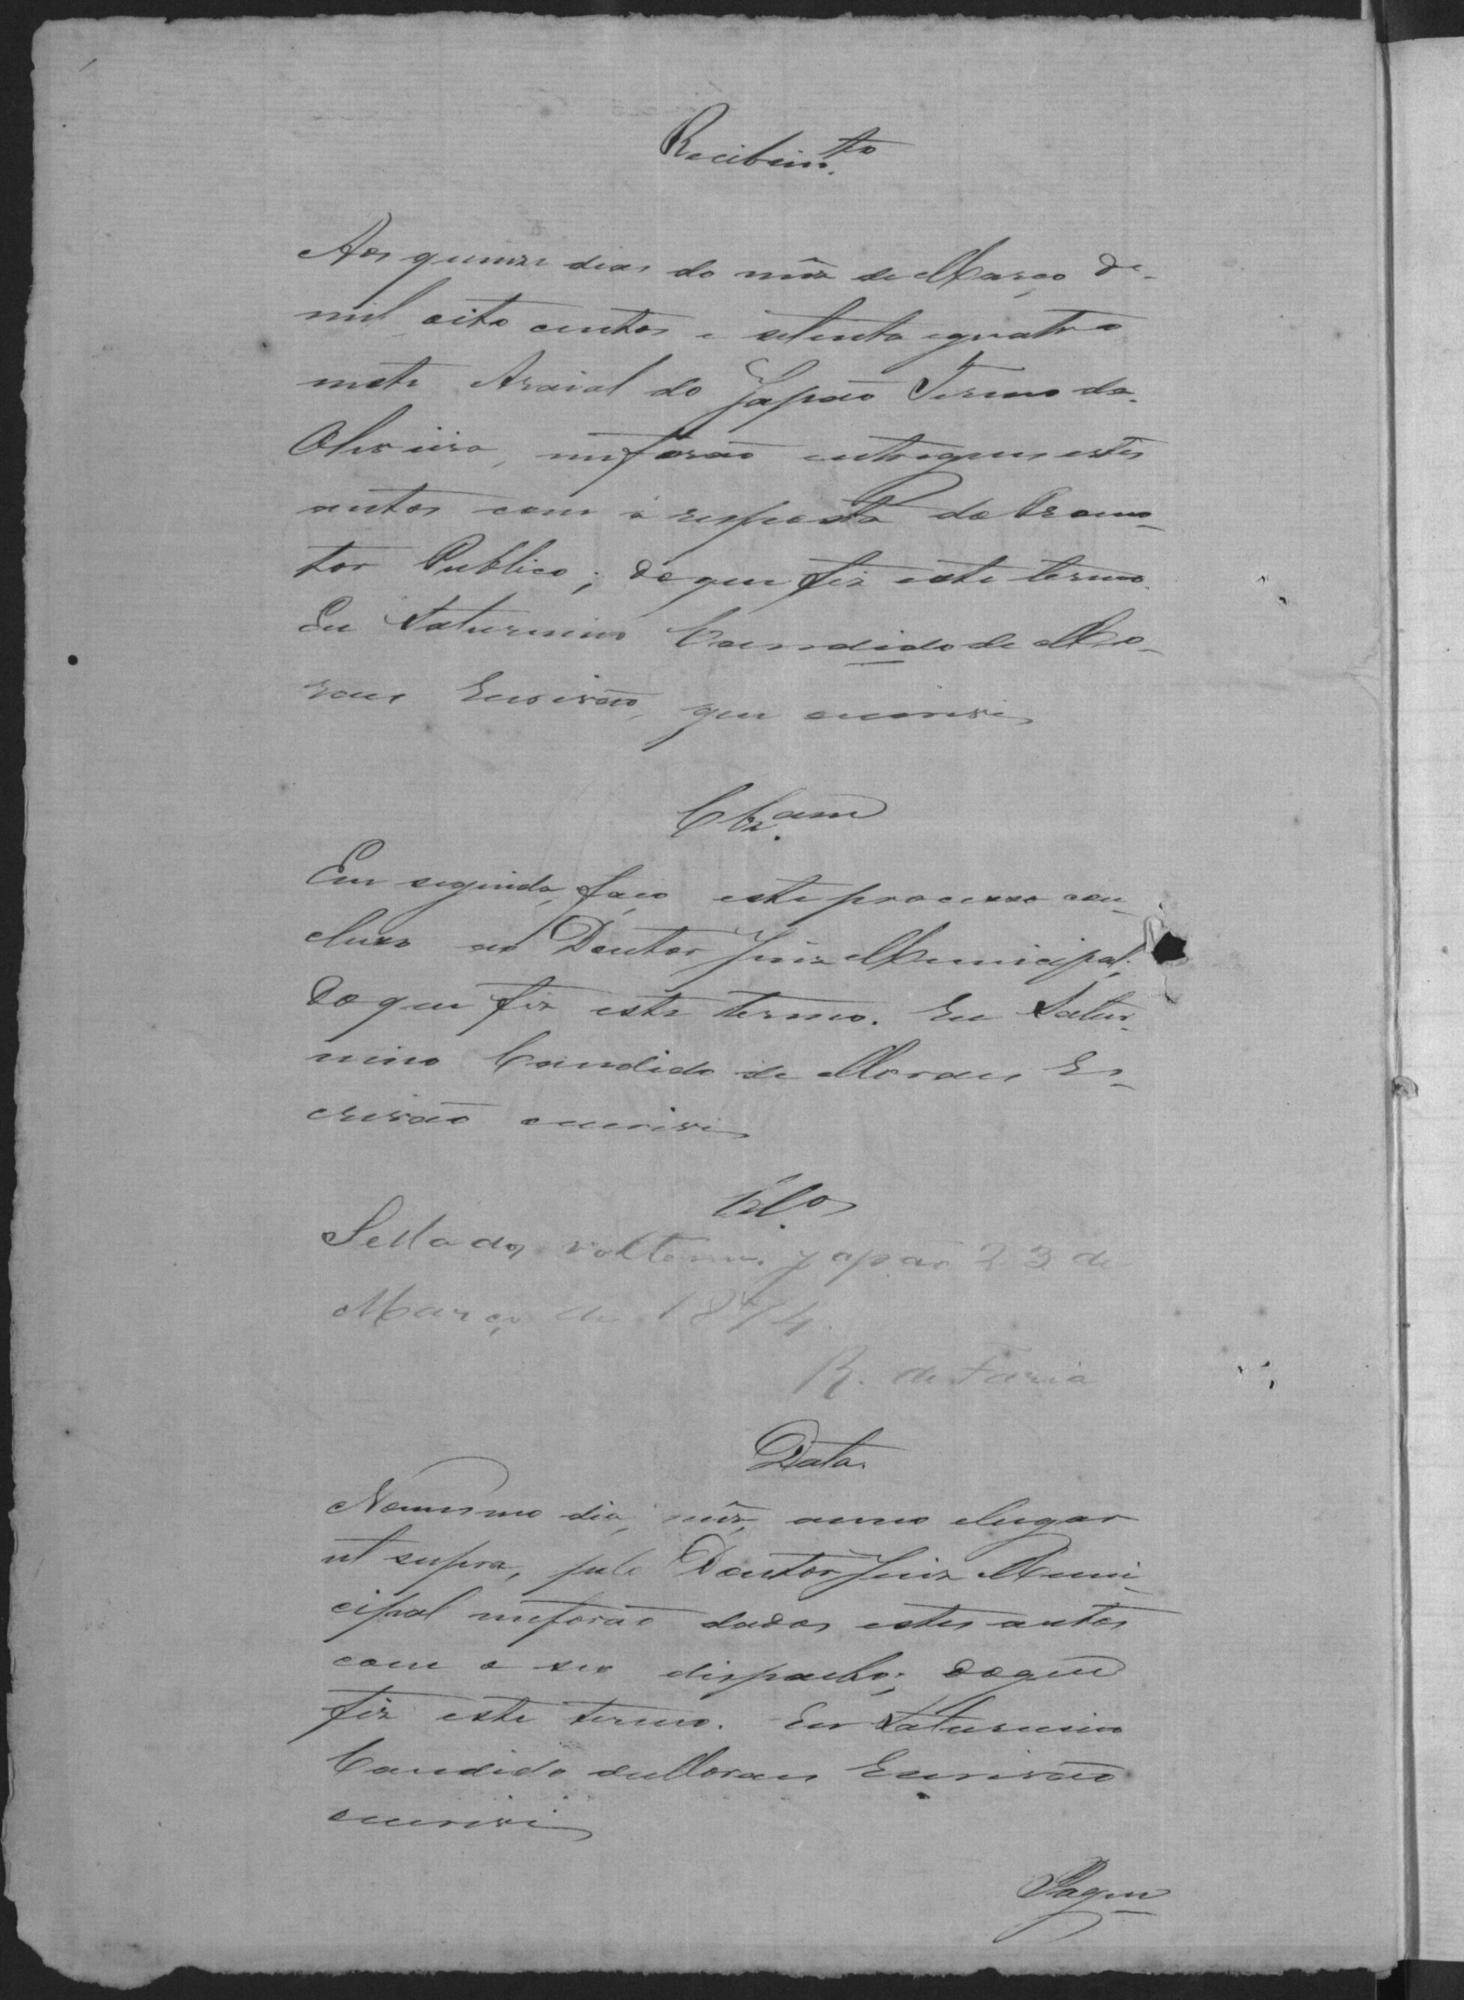 Recibim.to
Aos quinze dias do mêz de Março de
mil oito centos e setenta equatro
neste Araial do Japão Termo da
Oliveira, me forão entregues estes
autos com a resposta do Promo-
tor Publico; do que fiz este termo.
Eu Saturnino Candido de Mo-
raes Escrivão, que escrevi
Clz.am
Em seguida, faço este processo con-
cluzo ao Doutor Juiz Municipal;
do que fiz este termo. Eu Satur-
nino Candido de Moraes Es-
crivão escrevi
Cl.os
Sellados voltem. Japão 23 de
Março de 1874.
R. de Faria
Data
No mesmo dia, mêz, anno elugar
ut supra, pelo Doutor Juiz Muni-
cipal me forão dados estes autos
com o seu dispacho; do que
fiz este termo. Eu Saturnino
Candido de Moraes Escrivão
escrevi
Pagou